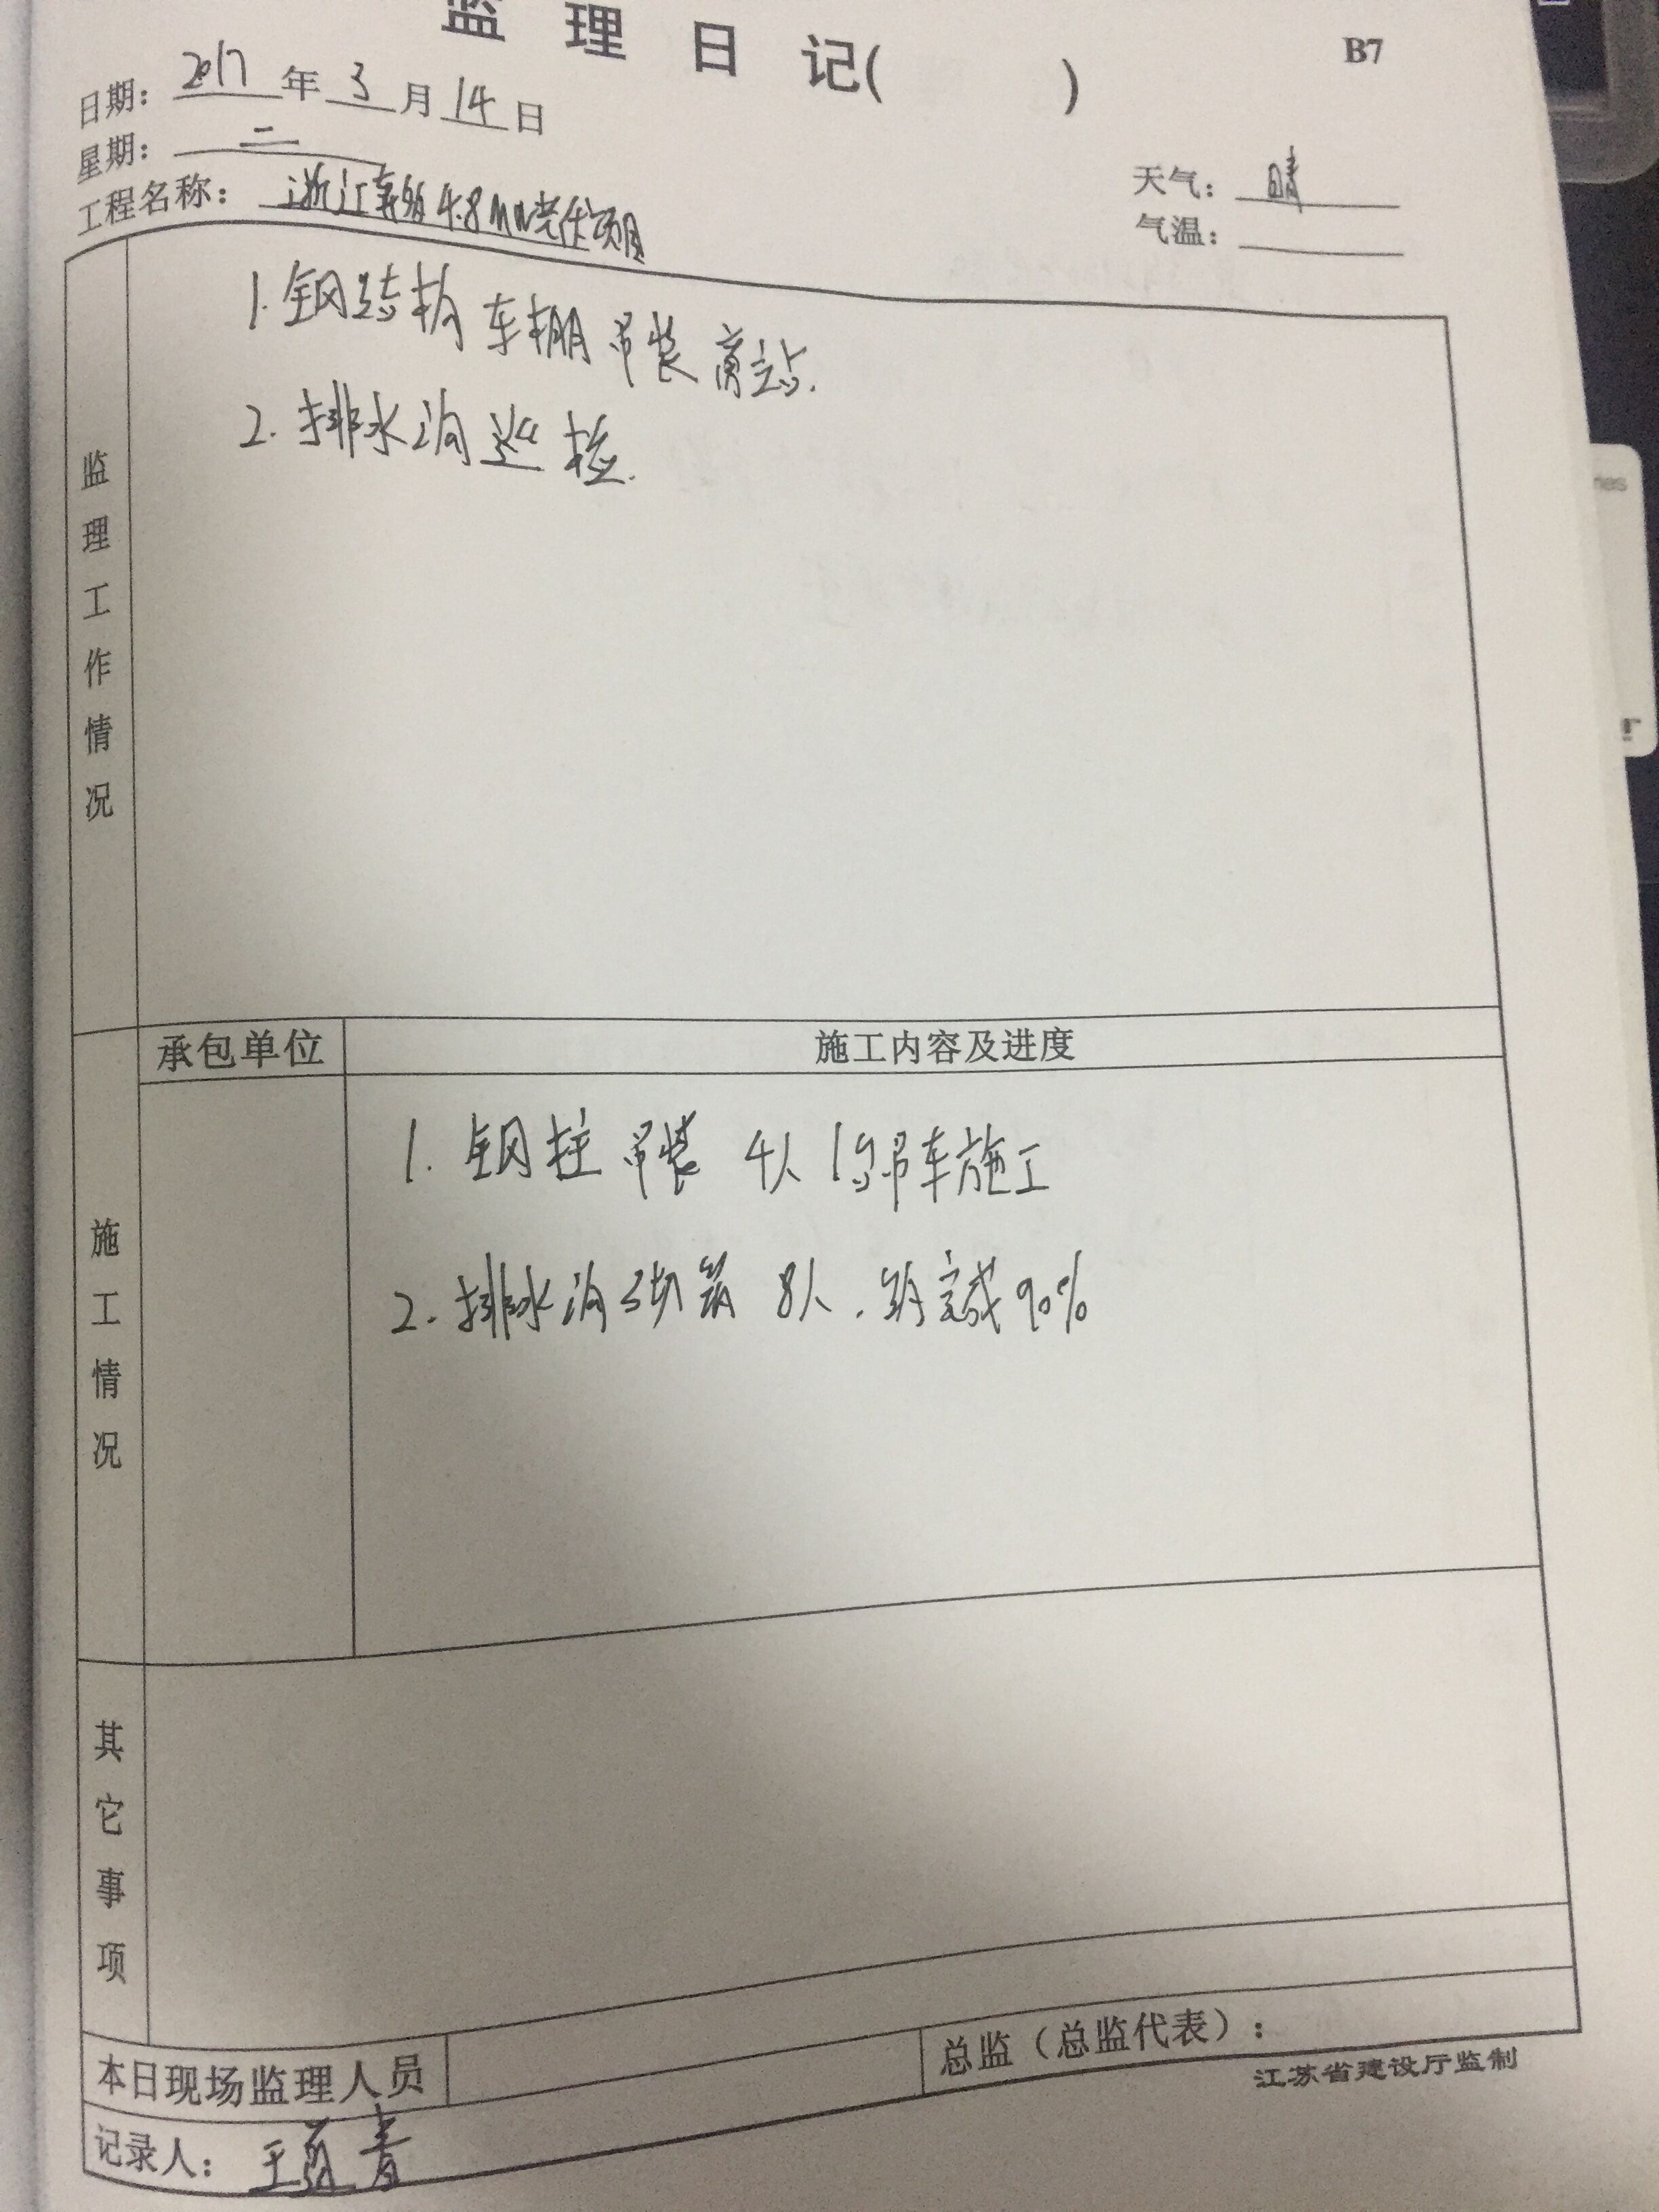 监理日记( )
B7
日期：2017年3月14日
星期：二
天气：晴
工程名称：浙江 4.8MW光伏项目
气温：
监理工作情况
1. 钢结构车棚吊装旁站.
2. 排水沟巡检.
承包单位
施工内容及进度
施工情况
1. 钢柱吊装 4人 1台吊车施工
2. 排水沟砌筑 8人. 约完成90%
其它事项
本日现场监理人员
总监（总监代表）：
江苏省建设厅监制
记录人：王 青